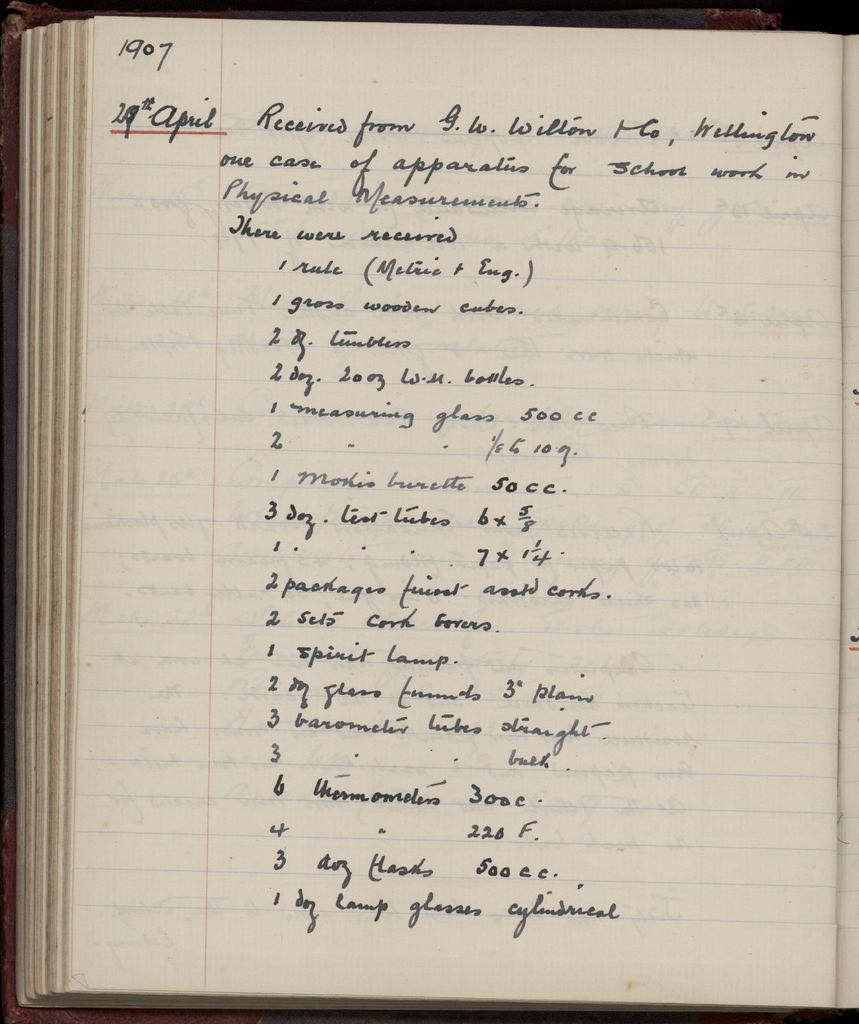 1907
29th April Received from G. W. Wilton & Co, Wellington
one case of apparatus for school work in
Physical Measurements.
There were received
1 rule (Metric & Eng.)
1 gross wooden cubes.
2 dz. tumblers
2 doz. 20 oz W.M. bottles.
1 measuring glass 500 cc
2 " " to 10 oz.
1 Mohr's burette 50 cc.
3 doz. test tubes 6 x 5/8
1 . . . 7 x 1 1/4.
2 packages finest asstd corks.
2 sets cork borers.
1 spirit lamp.
2 doz glass funnels 3" plain
3 barometer tubes straight.
3 " " bulb.
6 thermometers 300 C.
4 " 220 F.
3 doz flasks 500 cc.
1 doz lamp glasses cylindrical